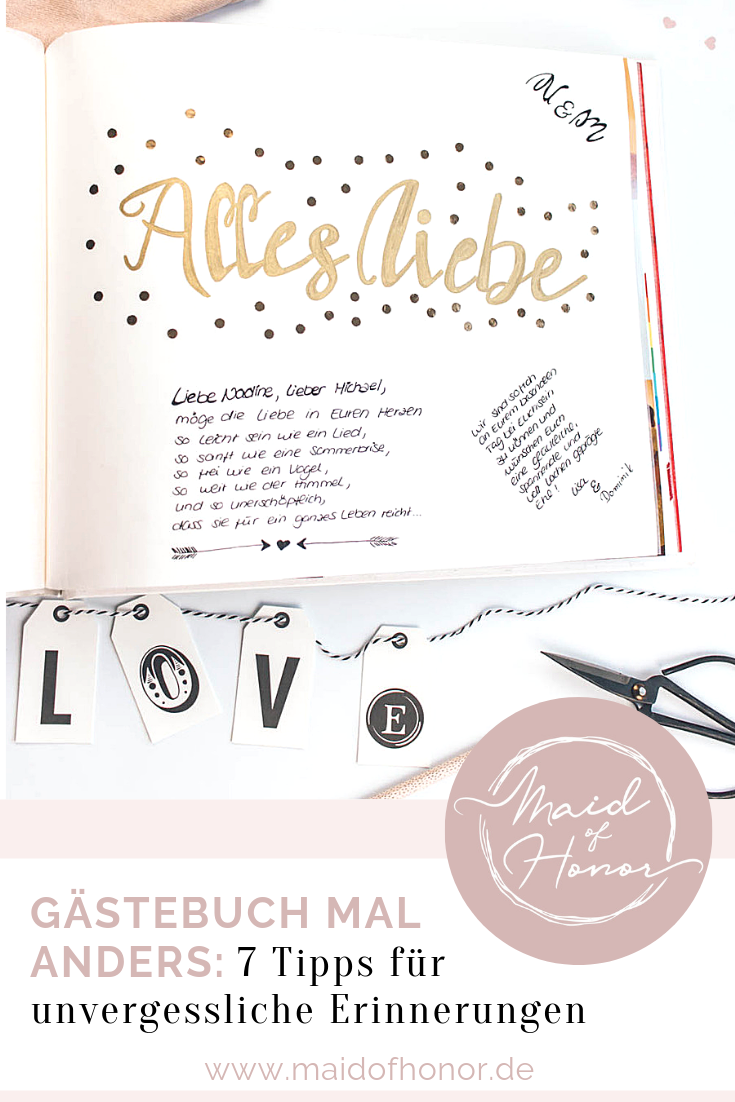 N & M
Alles Liebe
Liebe Nadine, lieber Michael,
möge die Liebe in Euren Herzen
so leicht sein wie ein Lied,
so sanft wie eine Sommerbrise,
so frei wie ein Vogel,
so weit wie der Himmel,
und so unerschöpflich,
dass sie für ein ganzes Leben reicht...
Wir sind so froh
an Eurem besonderen
Tag bei Euch sein
zu können und
wünschen Euch
eine glückliche,
spannende und
von Lachen geprägte
Ehe!
Lisa
&
Dominik
LOVE
Maid
of
Honor
GÄSTEBUCH MAL
ANDERS: 7 Tipps für
unvergessliche Erinnerungen
www.maidofhonor.de